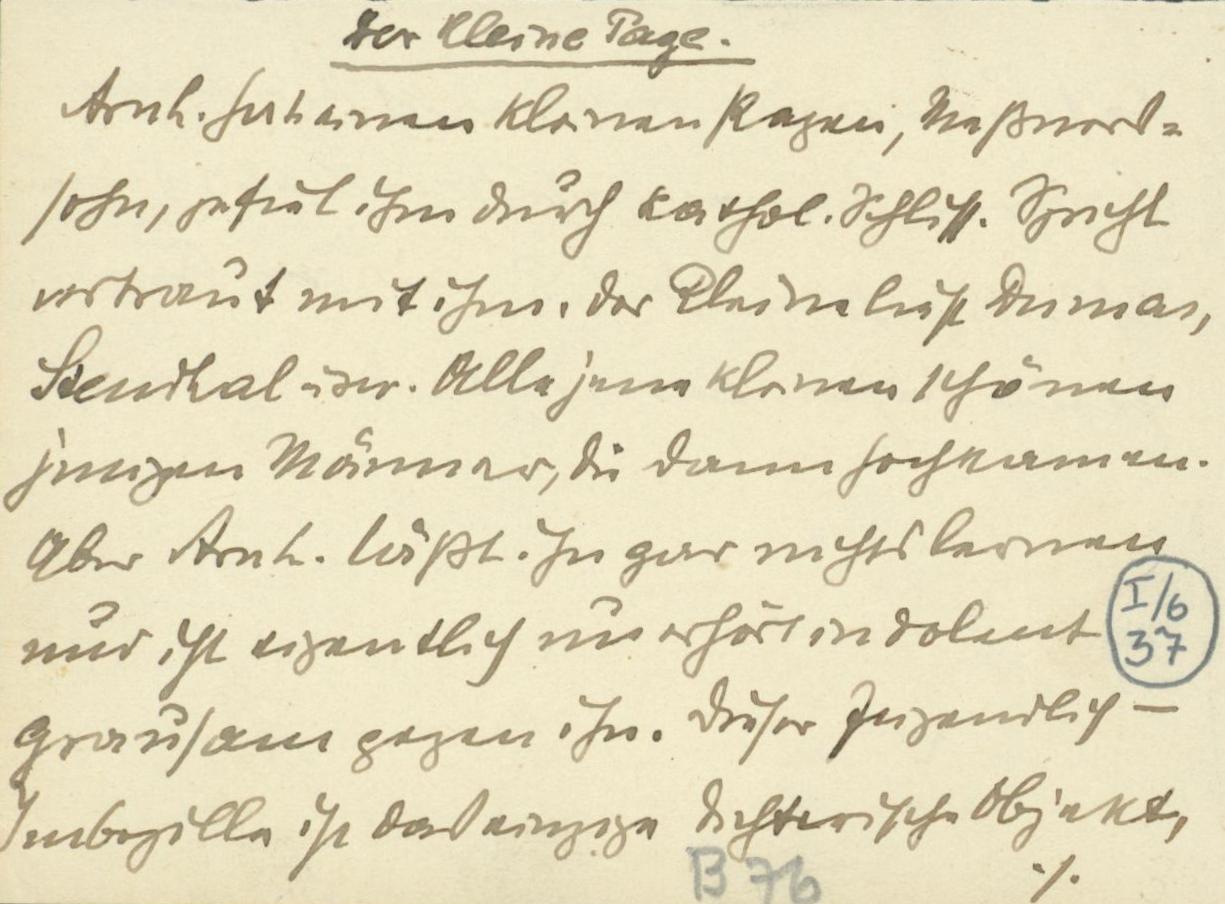 Der kleine Page.
Arnh. hat einen kleinen Pagen, Meßner-
sohn, gefiel ihm durch kathol. Schliff. Spricht
vertraut mit ihm. Der Kleine liest Dumas,
Stendhal usw. Alle jene kleinen schönen
jungen Männer, die dann hochkamen.
Aber Arnh. läßt ihn gar nichts lernen
und ist eigentlich unerhört indolent
grausam gegen ihn. Dieser Jugendlich–
Imbezille ist das einzige dichterische Objekt,
I/6
37
B 76
./.